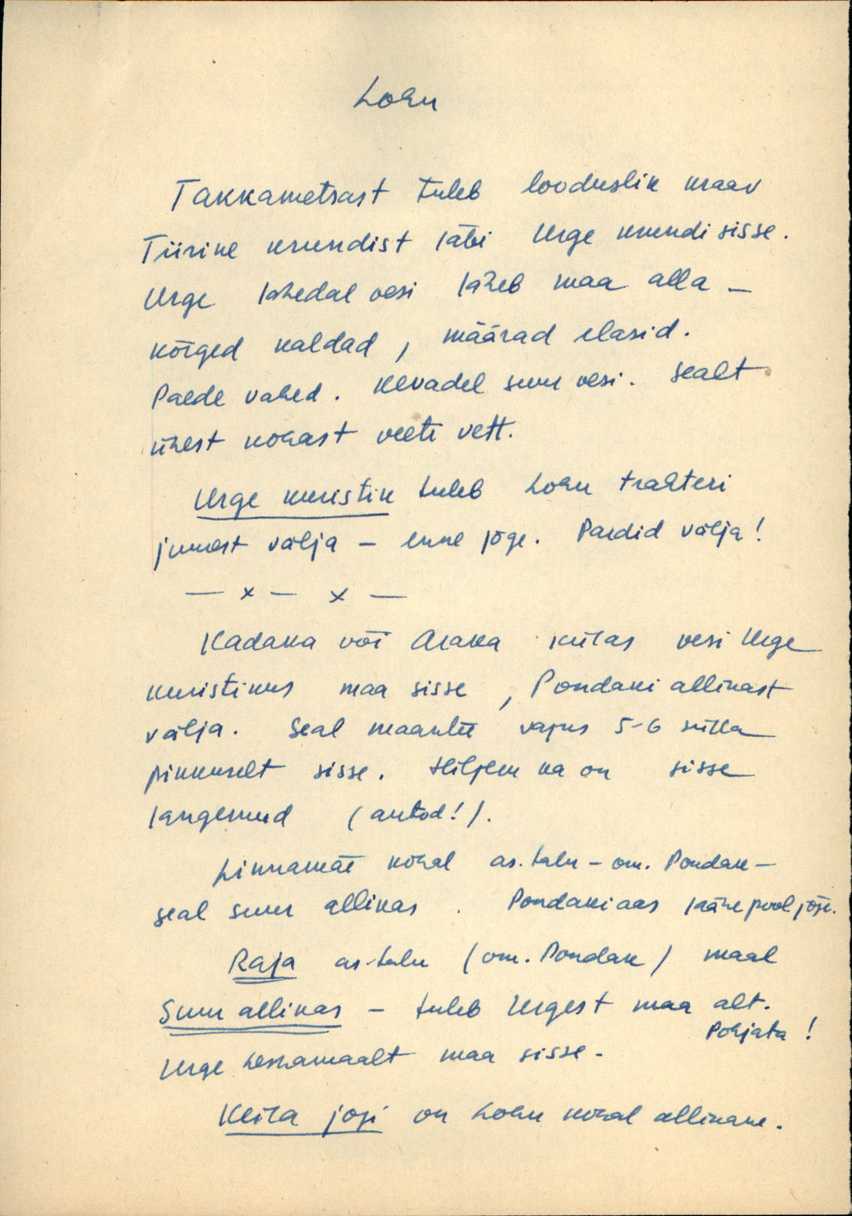 Lohu
Takkametsast tuleb looduslik kraav
Tiirine krundist läbi Urge krundi sisse.
Urge lähedal vesi läheb maa alla –
kõrged kaldad, määrad elasid.
Paede vahed. Kevadel suur vesi. Sealt
ühest kohast veeti vett.
Urge kuristik tuleb Lohu trahteri
juurest välja – enne jõge. Pardid välja!
— x — x —
Kadaka või Araka külas vesi Urge
kuristikus maa sisse, Pondaki allikast
välja. Seal maantee vajus 5-6 sülla
pikkuselt sisse. Hiljem ka on sisse
langenud (autod!).
Linnamäe kohal as. talu – om. Pondak –
seal suur allikas. Pondakiaas läänepool jõge.
Raja as. talu (om. Pondak) maal
Suur allikas – tuleb Urgest maa alt.
Pohjata!
Urge heinamaalt maa sisse.
Keila jogi on Lohu kohal allikane.